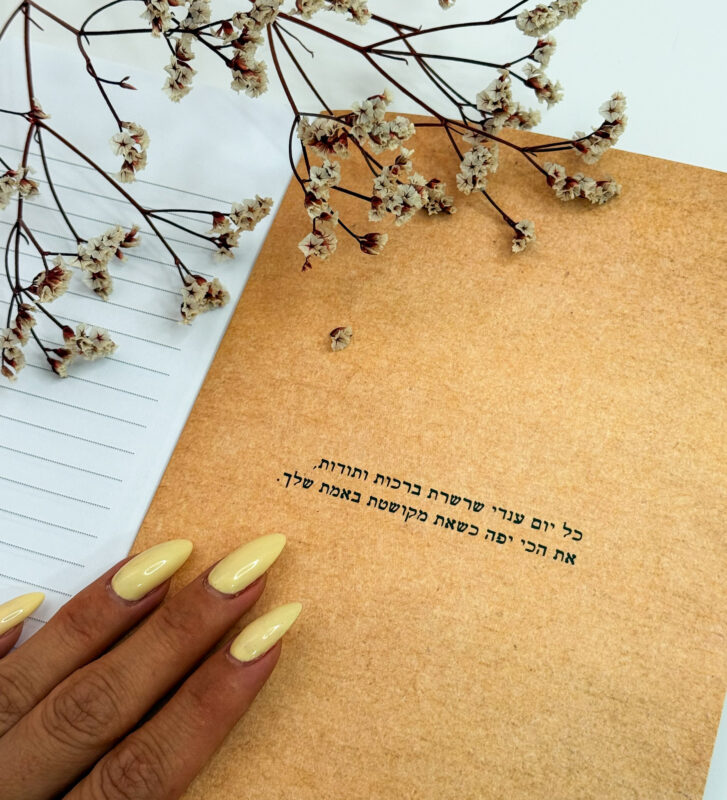 כל יום ענדי שרשרת ברכות ותודות,
את הכי יפה כשאת מקושטת באמת שלך.